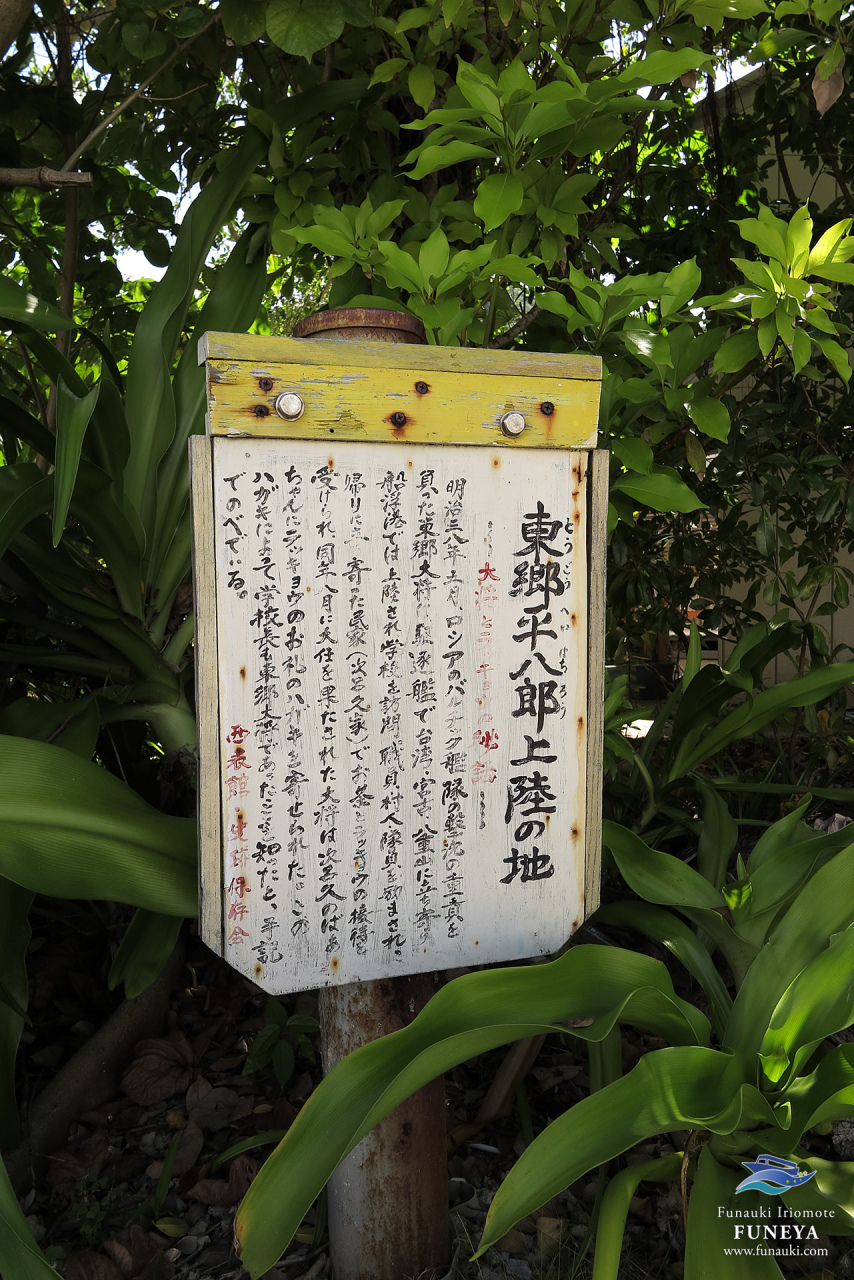 東郷平八郎上陸の地
とうごう へいはちろう
大将とラッキョウの秘話
明治三八年五月、ロシアのバルチック艦隊の撃沈の重責を
負った東郷大将は駆逐艦で台湾、宮古、八重山に立ち寄り、
船浮港では上陸され、学校を訪問、職員、村人、隊員を励まされ、
帰りに立寄った民家(次呂久家)でお茶とラッキョウの接待を
受けられ、同年八月に大任を果たされた大将は次呂久のばあ
ちゃんにラッキョウのお礼のハガキを寄せられた。この
ハガキによって学校長も東郷大将であったことを知ったと、手記
でのべている。
西表館 史跡保存会
Funauki Iriomote
FUNEYA
www.funauki.com